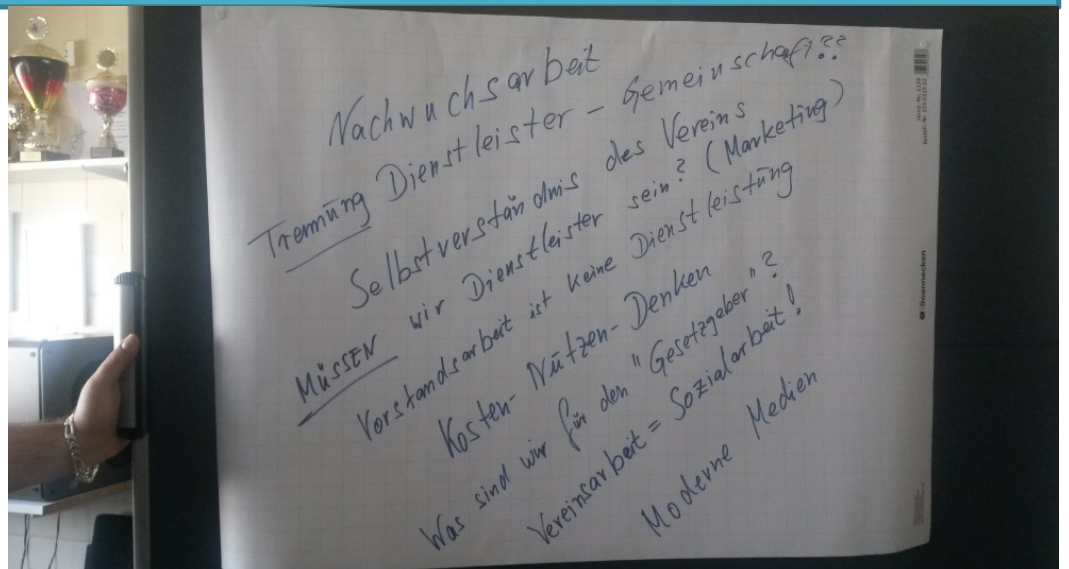 Nachwuchsarbeit
Trennung Dienstleister - Gemeinschaft??
Selbstverständnis des Vereins
MÜSSEN wir Dienstleister sein? (Marketing)
Vorstandsarbeit ist keine Dienstleistung
Kosten-Nutzen-Denken
Was sind wir für den "Gesetzgeber"?
Vereinsarbeit = Sozialarbeit!
Moderne Medien
Soennecken